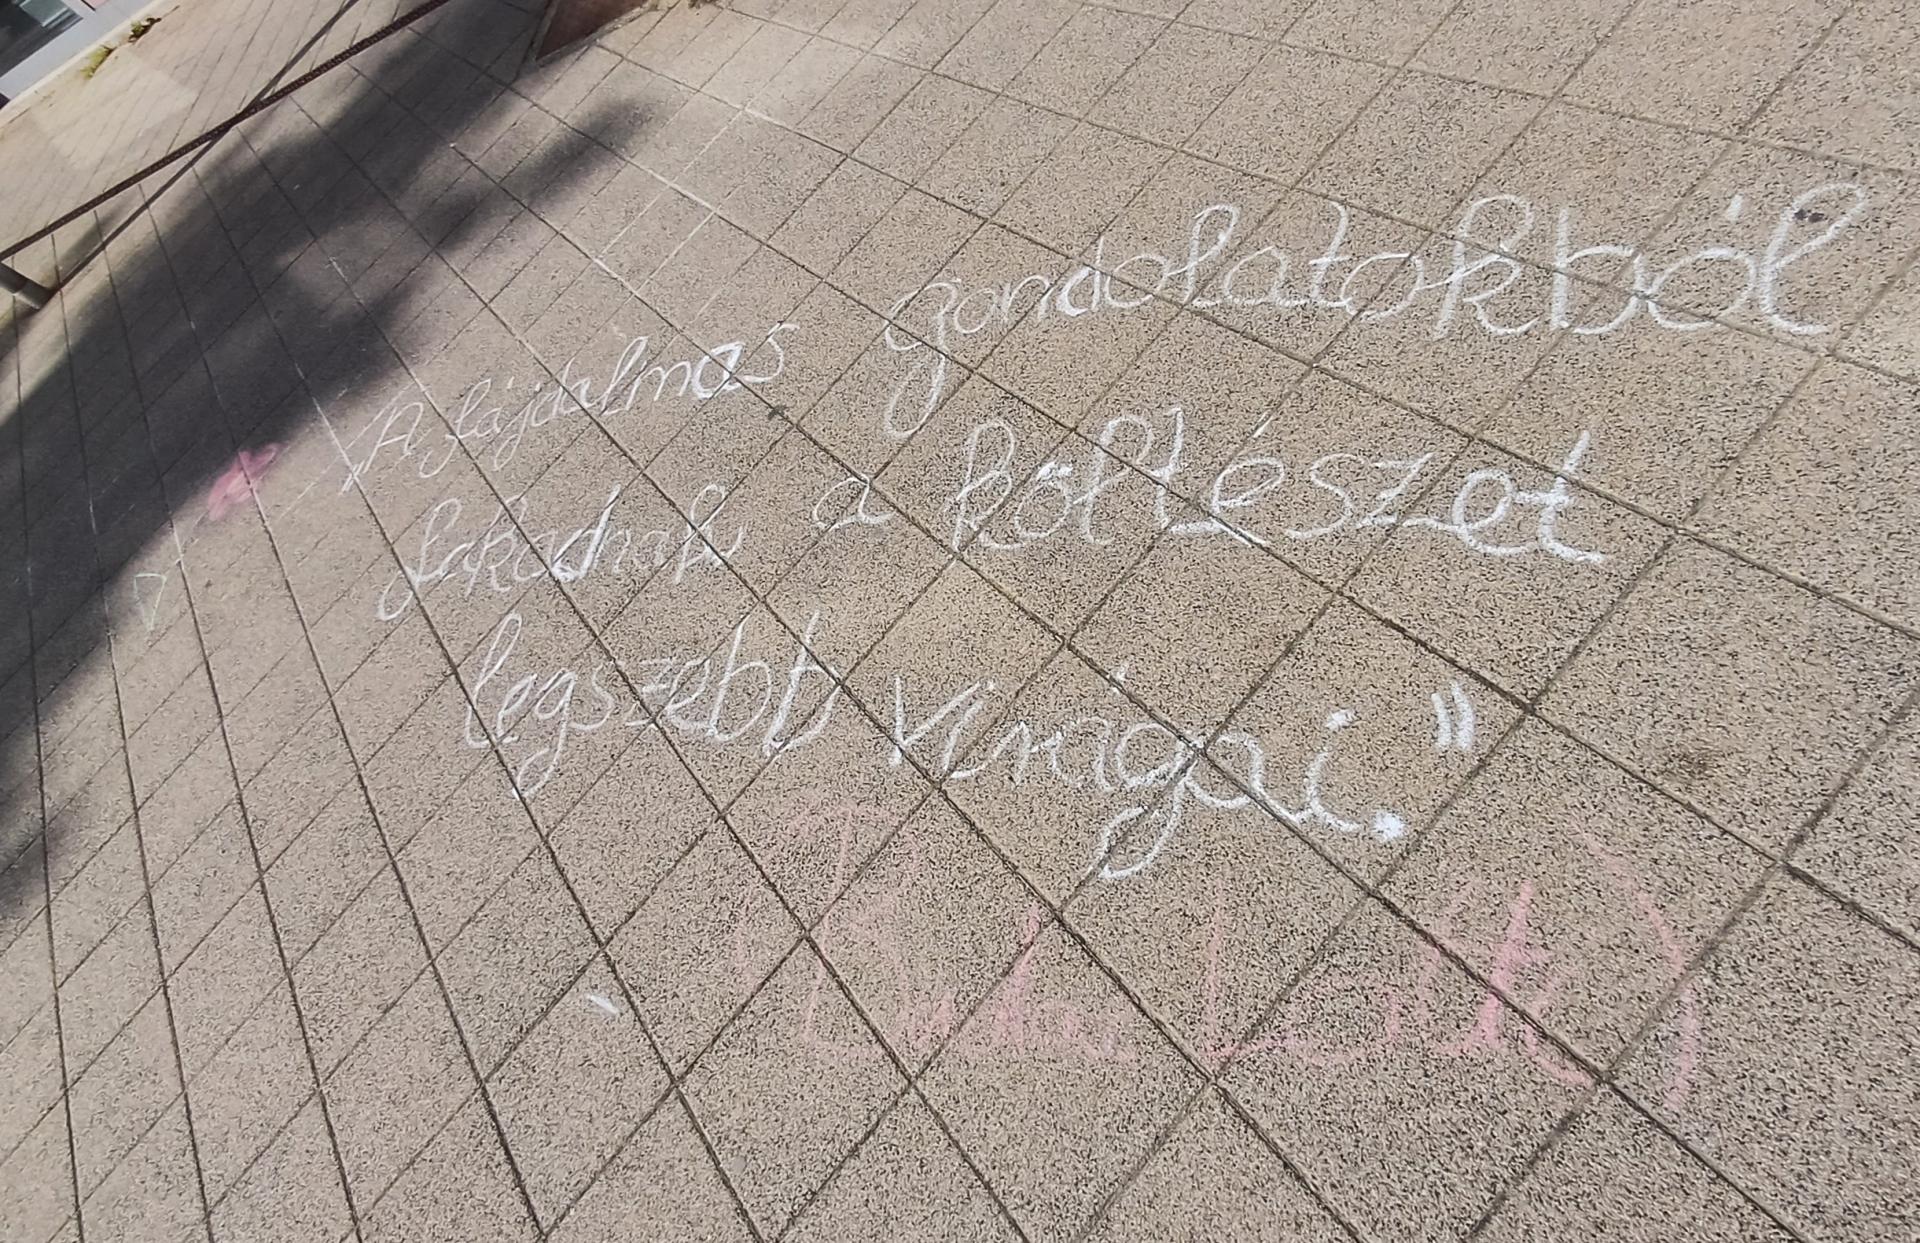 „A fájdalmas gondolatokból
fakadnak a költészet
legszebb virágai.”